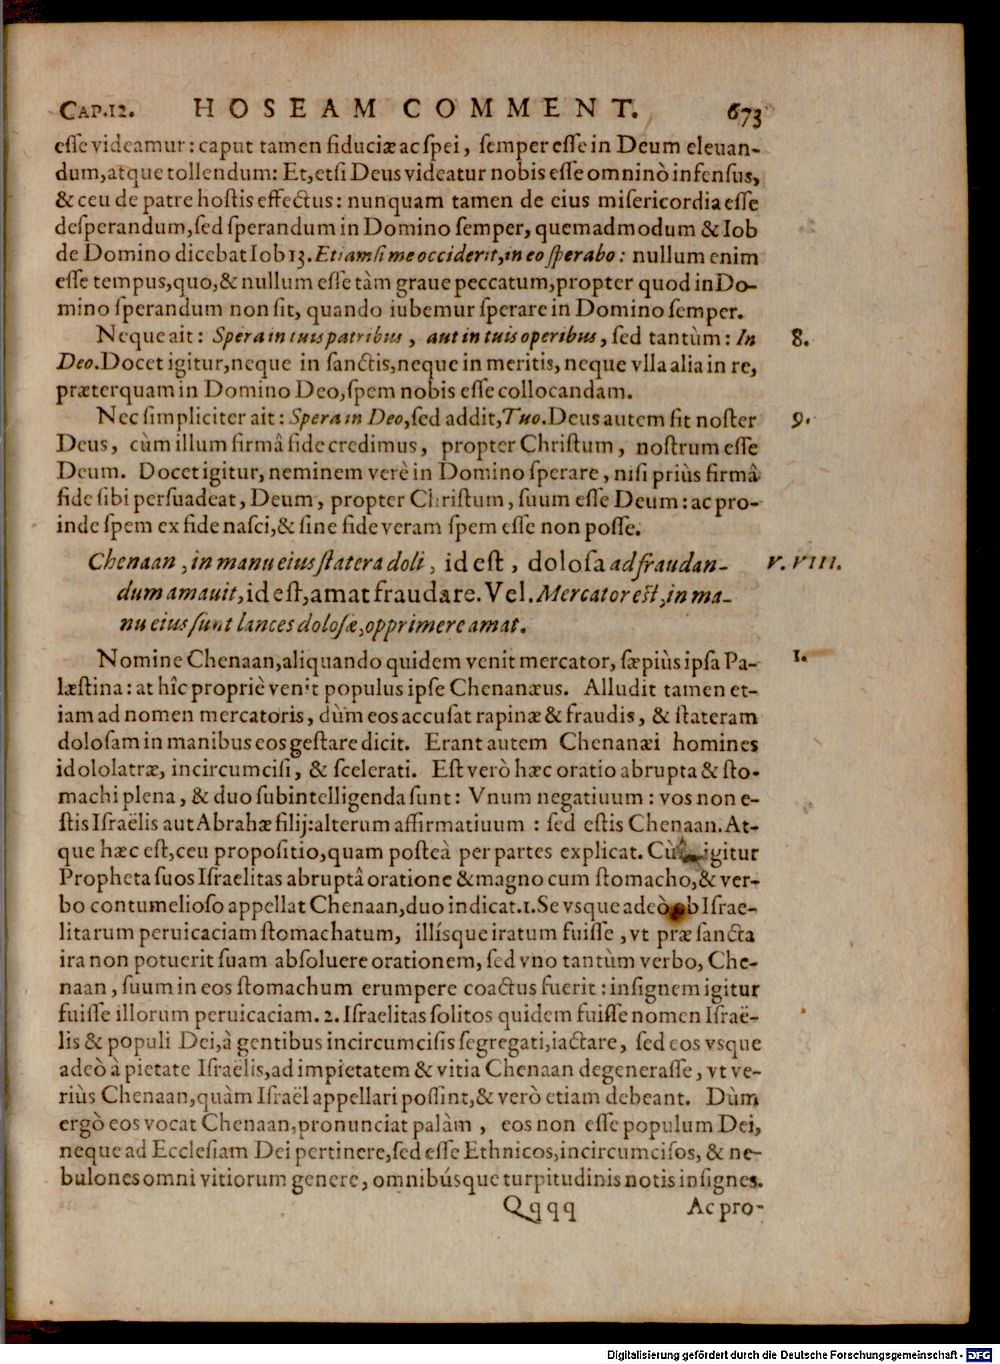 CAP.12. HOSEAM COMMENT. 673
eſſe videamur: caput tamen fiduciæ ac ſpei, ſemper eſſe in Deum eleuan-
dum, atque tollendum: Et, etſi Deus videatur nobis eſſe omninò infenſus,
& ceu de patre hoſtis effectus: nunquam tamen de eius miſericordia eſſe
deſperandum, ſed ſperandum in Domino ſemper, quemadmodum & Iob
de Domino dicebat Iob 13. Etiamſi me occiderit, in eo ſperabo: nullum enim
eſſe tempus, quo, & nullum eſſe tàm graue peccatum, propter quod in Do-
mino ſperandum non ſit, quando iubemur ſperare in Domino ſemper.
Neque ait: Spera in tuis patribus, aut in tuis operibus, ſed tantùm: In 8.
Deo. Docet igitur, neque in ſanctis, neque in meritis, neque vlla alia in re,
præterquam in Domino Deo, ſpem nobis eſſe collocandam.
Nec ſimpliciter ait: Spera in Deo, ſed addit, Tuo. Deus autem fit noſter 9.
Deus, cùm illum firmâ fide credimus, propter Chriſtum, noſtrum eſſe
Deum. Docet igitur, neminem verè in Domino ſperare, niſi priùs firmâ
fide ſibi perſuadeat, Deum, propter Chriſtum, ſuum eſſe Deum: ac pro-
inde ſpem ex fide naſci, & ſine fide veram ſpem eſſe non poſſe.
Chenaan, in manu eius ſtatera doli, id eſt, doloſa ad fraudan- V. VIII.
dum amauit, id eſt, amat fraudare. Vel. Mercator eſt, in ma-
nu eius ſunt lances doloſæ, opprimere amat.
Nomine Chenaan, aliquando quidem venit mercator, ſæpiùs ipſa Pa- 1.
læſtina: at hîc propriè venit populus ipſe Chenanæus. Alludit tamen et-
iam ad nomen mercatoris, dùm eos accuſat rapinæ & fraudis, & ſtateram
doloſam in manibus eos geſtare dicit. Erant autem Chenanæi homines
idololatræ, incircumciſi, & ſcelerati. Eſt verò hæc oratio abrupta & ſto-
machi plena, & duo ſubintelligenda ſunt: Vnum negatiuum: vos non e-
ſtis Iſraëlis aut Abrahæ filij: alterum affirmatiuum: ſed eſtis Chenaan. At-
que hæc eſt, ceu propoſitio, quam poſteà per partes explicat. Cùm igitur
Propheta ſuos Iſraelitas abruptâ oratione & magno cum ſtomacho, & ver-
bo contumelioſo appellat Chenaan, duo indicat. 1. Se vsque adeò ob Iſrae-
litarum peruicaciam ſtomachatum, illíſque iratum fuiſſe, vt præ ſancta
ira non potuerit ſuam abſoluere orationem, ſed vno tantùm verbo, Che-
naan, ſuum in eos ſtomachum erumpere coactus fuerit: inſignem igitur
fuiſſe illorum peruicaciam. 2. Iſraelitas ſolitos quidem fuiſſe nomen Iſraë-
lis & populi Dei, à gentibus incircumciſis ſegregati, iactare, ſed eos vsque
adeò à pietate Iſraëlis, ad impietatem & vitia Chenaan degeneraſſe, vt ve-
riùs Chenaan, quàm Iſraël appellari poſſint, & verò etiam debeant. Dùm
ergò eos vocat Chenaan, pronunciat palàm, eos non eſſe populum Dei,
neque ad Eccleſiam Dei pertinere, ſed eſſe Ethnicos, incircumciſos, & ne-
bulones omni vitiorum genere, omnibúsque turpitudinis notis inſignes.
Qqqq Ac pro-
Digitalisierung gefördert durch die Deutsche Forschungsgemeinschaft - DFG